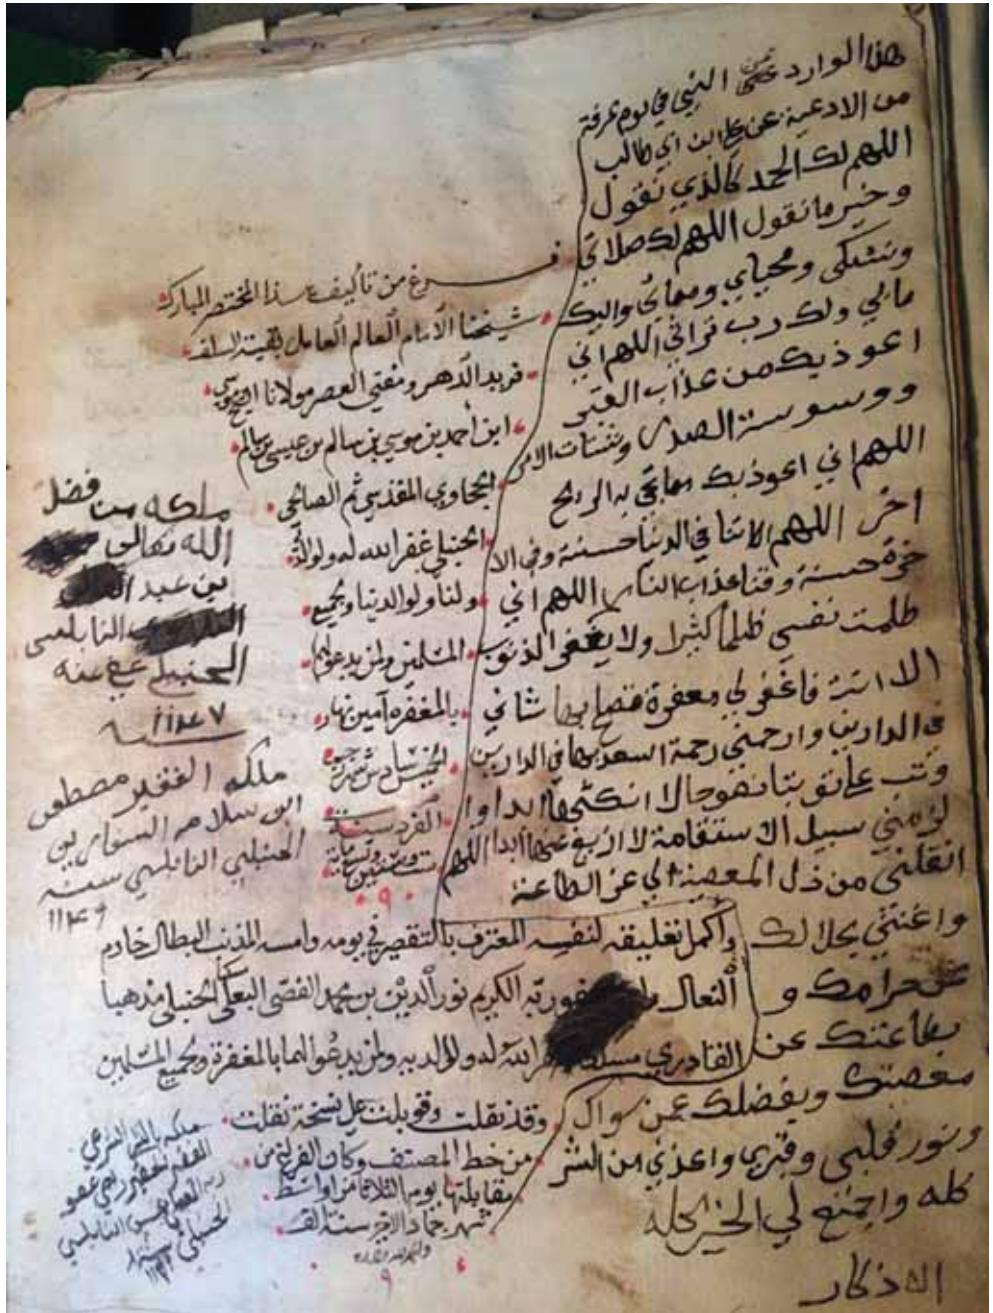 هذا الوارد عن النبي في يوم عرفة
من الادعية عن علي ابن ابي طالب
اللهم لك الحمد كالذي نقول
وخير ما نقول اللهم لك صلاتي
ونسكي ومحياي ومماتي واليك
مابي ولك رب تراثي اللهم اني
اعوذ بك من عذاب القبر
ووسوسة الصدر وشتات الامر
اللهم اني اعوذ بك مما تجي به الريح
اخر اللهم اتنا في الدنيا حسنة وفي الا
خرة حسنة وقنا عذاب النار اللهم اني
ظلمت نفسي ظلما كثيرا ولا يغفر الذنوب
الا انت فاغفر لي مغفرة تصلح بها شاني
في الدارين وارحمني رحمة اسعد بها في الدارين
وتب علي توبتا نصوحا لا انكثها ابدا وا
لزمني سبيل الاستقامة لا ازيغ عنها ابدا اللهم
انقلني من ذل المعصية الي عز الطاعة
واغنني بحلالك
عن حرامك و
بطاعتك عن
معصيتك وبفضلك عمن سواك
ونور قلبي وقبري واعذني من الشر
كله واجمع لي الخير كله
الاذكار
فرغ من تأليف هذا المختصر المبارك
شيخنا الامام العالم العامل بقية السلف
فريد الدهر ومفتي العصر مولانا الشيخ موسى
ابن أحمد بن موسي بن سالم بن عيسى بن سالم
الحجاوي المقدسي ثم الصالحي
الحنبلي غفر الله له ولوالديه
ولنا ولوالدينا ولجميع
المسلمين ولمن يدعو لهم
بالمغفرة آمين نهار
الخميس سادس شهر رجب
الفرد سنة
ست وستين وتسعمائة
وأكمل تعليقه لنفسه المعترف بالتقصير في يومه وامسه المذنب البطال خادم
النعال ربه الكريم نور الدين بن محمد الفصي البعلي الحنبلي مذهبا
القادري الله له ولوالديه ولمن يدعو لهما بالمغفرة ولجميع المسلمين
وقد نقلت وقوبلت علي نسخة نقلت
من خط المصنف وكان الفراغ من
مقابلتها يوم الثلاثا من اواسط
شهر جماد الاخر سنة الف
ملكه من فضل
الله تعالى
بن عبد
النابلسي
الحنبلي عفي عنه
سنة ١١٤٧
ملكه الفقير مصطفى
ابن سلامه السفاريني
الحنبلي النابلسي سنة
١١٤٦
ملكه الشرعي
الفقير الحقير راجي عفو
ربه النابلسي
الحنبلي سنة